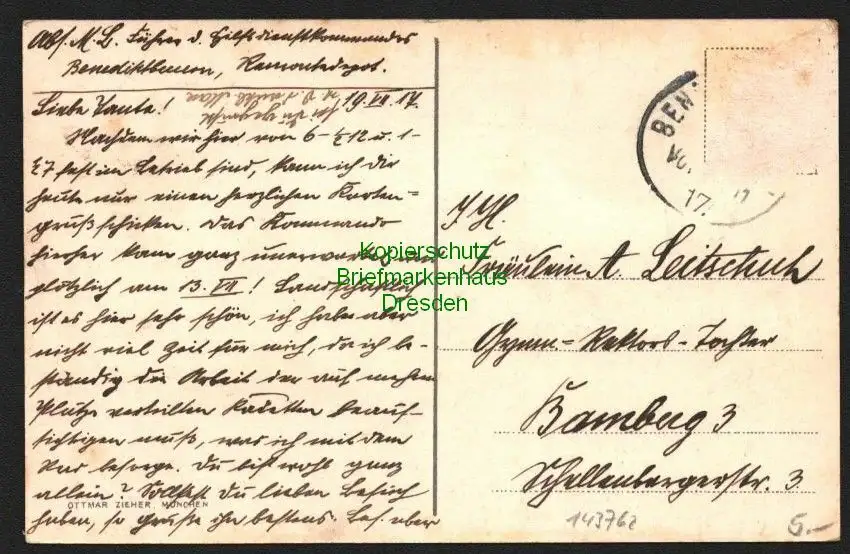 Abs. M. L. Führer d. Hilfsdienstkommandos
Benediktbeuern, Remontedepot.
Liebe Tante! 19. VII. 17.
Nachdem wir hier von 6-½12 u. 1-
½7 fest im Betrieb sind, kann ich dir
heute nur einen herzlichen Karten-
gruß schicken. Das Kommando
hierher kam ganz
plötzlich am 13. VII! Landschaftlich
ist es hier sehr schön, ich habe aber
nicht viel Zeit für mich, da ich be-
ständig die Arbeit der auf mehrere
Plätze verteilten Kadetten beauf-
sichtigen muß, was ich mit dem
Rad besorge. Du bist wohl ganz
allein? Solltest du lieben Besuch
haben, so grüße ihn bestens.
OTTMAR ZIEHER, MÜNCHEN
BEN
17.
Fräulein A. Leitschuh
Gymn.-Rektors-Tochter
Bamberg 3
Schellenbergerstr. 3
Kopierschutz
Briefmarkenhaus
Dresden
143762
5.-